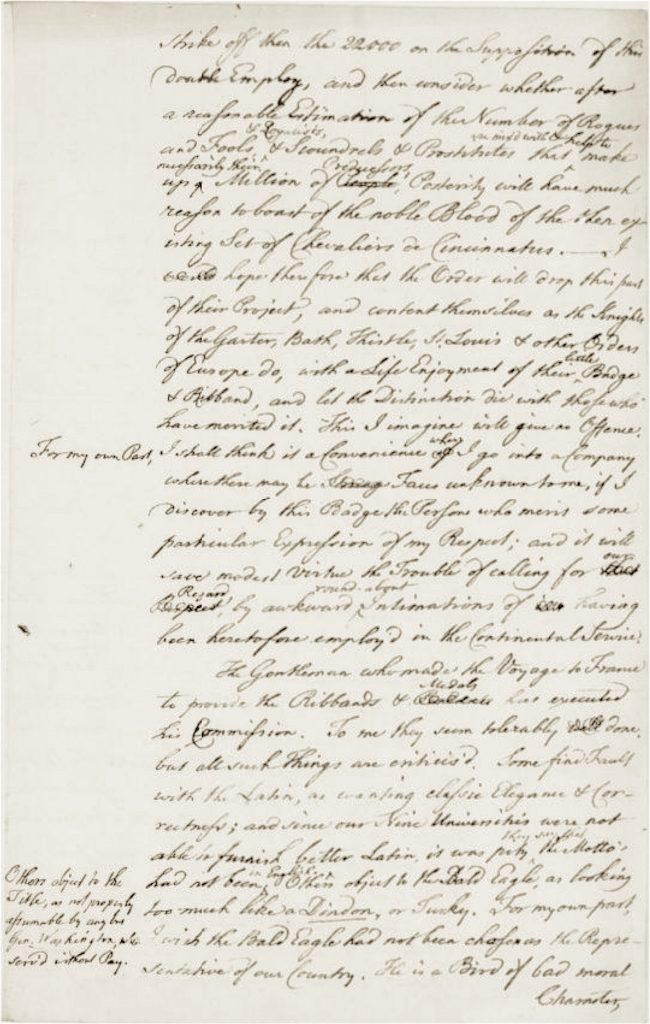 strike off then the 22000 on the Supposition of this
double Employ, and then consider whether after
a reasonable Estimation of the Number of Rogues
& Royalists,
and Fools, & Scoundrels & Prostitutes that make
necessarily their Predecessors
up a Million of People, Posterity will have much
reason to boast of the noble Blood of the then ex
isting Set of Chevaliers de Cincinnatus. — I
hope therefore that the Order will drop this part
of their Project, and content themselves as the Knights
of the Garter, Bath, Thistle, St. Louis & other Orders
little
of Europe do, with a Life Enjoyment of their Badge
& Ribband, and let the Distinction die with those who
have merited it. This I imagine will give no Offence.
For my own Part,
when
I shall think it a Convenience if I go into a Company
where there may be Faces unknown to me, if I
discover by this Badge the Persons who merit some
particular Expression of my Respect; and it will
our
save modest Virtue the Trouble of calling for that
Regard round-about
Respect, by awkward Intimations of having
been heretofore employ'd in the Continental Service.
The Gentleman who made the Voyage to France
Medals
to provide the Ribbands & has executed
his Commission. To me they seem tolerably well done,
but all such Things are criticis'd. Some find Fault
with the Latin, as wanting classic Elegance & Cor-
rectness; and since our Nine Universities were not
they say that
able to furnish better Latin, it was pity the Motto's
in English
had not been Others object to the Bald Eagle, as looking
too much like a Dindon, or Turky. For my own part,
I wish the Bald Eagle had not been chosen as the Repre-
sentative of our Country. He is a Bird of bad moral
Character,
Others object to the
Title, as not properly
assumable by any but
Gen. Washington, who
serv'd without Pay.